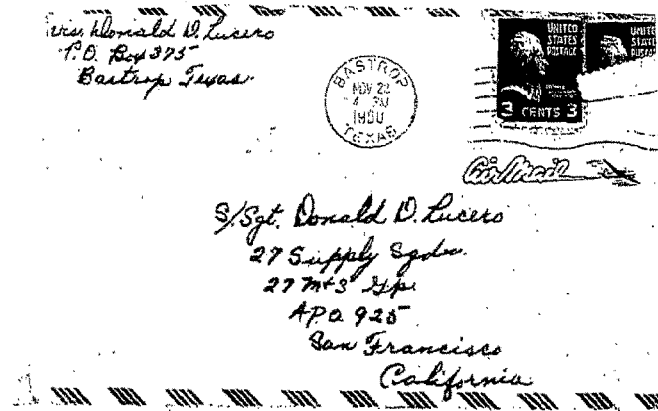 Mrs. Donald D. Lucero
P.O. Box 375
Bastrop Texas
BASTROP
NOV 22
4 PM
1950
TEXAS
UNITED
STATES
POSTAGE
3 CENTS 3
UNITED
STATES
POSTAGE
Air Mail
S/Sgt. Donald D. Lucero
27 Supply Sqdn.
27 M+S Gp.
APO 925
San Francisco
California